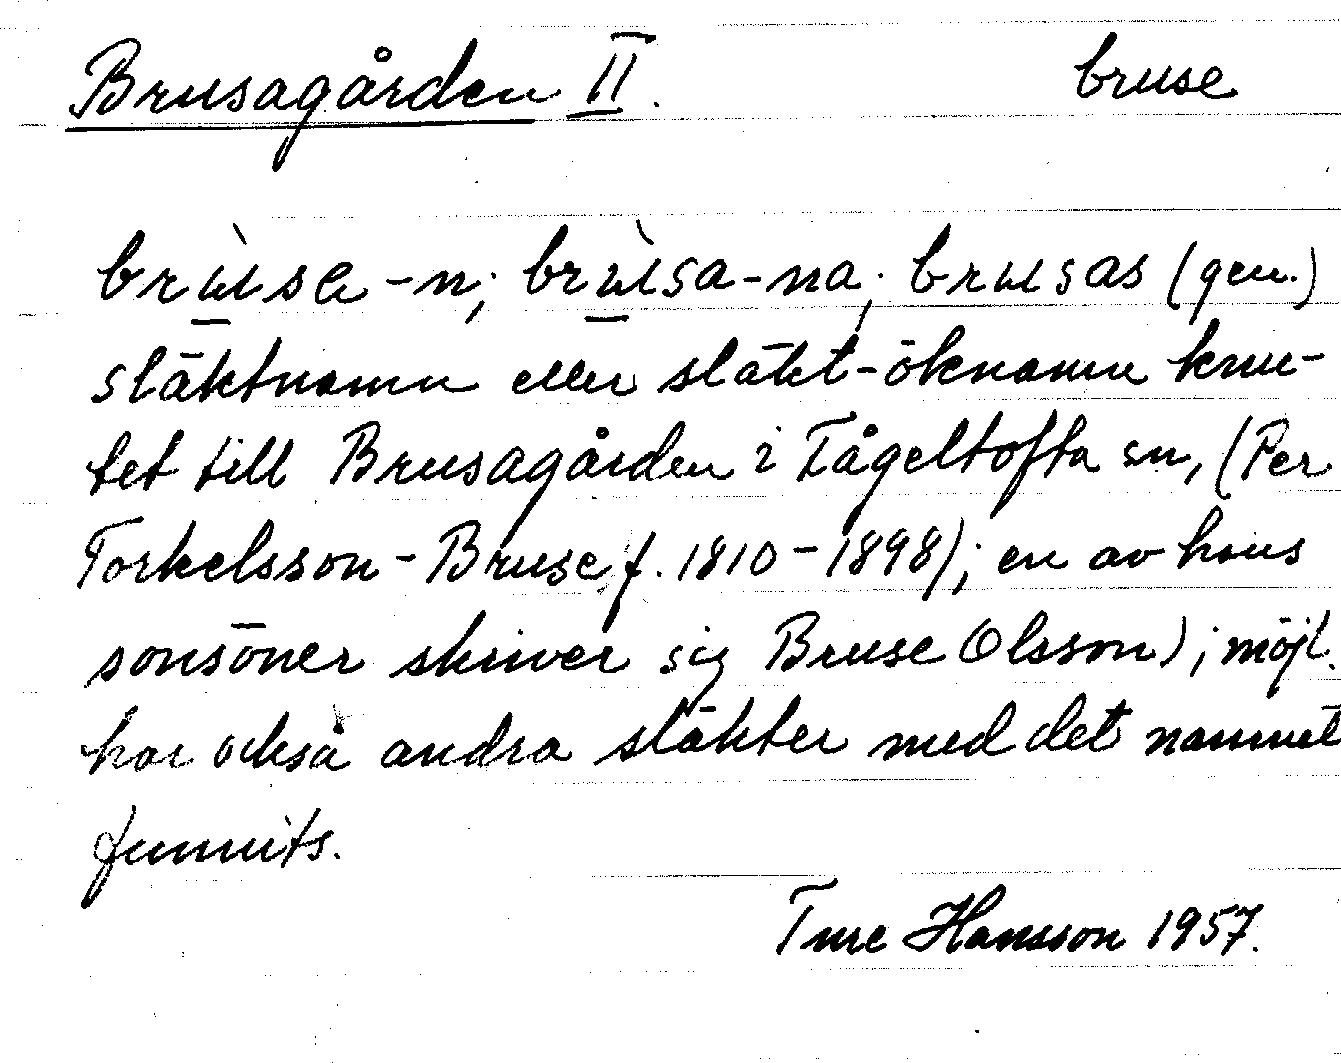 Brusagården II. bruse
brùse-n; brùsa-na; brusas (gen.)
släktnamn eller släkt-öknamn knu-
tet till Brusagården i Fågeltofta sn, (Per
Torkelsson-Bruse f. 1810-1898); en av hans
sonsöner skriver sig Bruse Olsson); möjl.
har också andra släkter med det namnet
funnits.
Ture Hansson 1957.